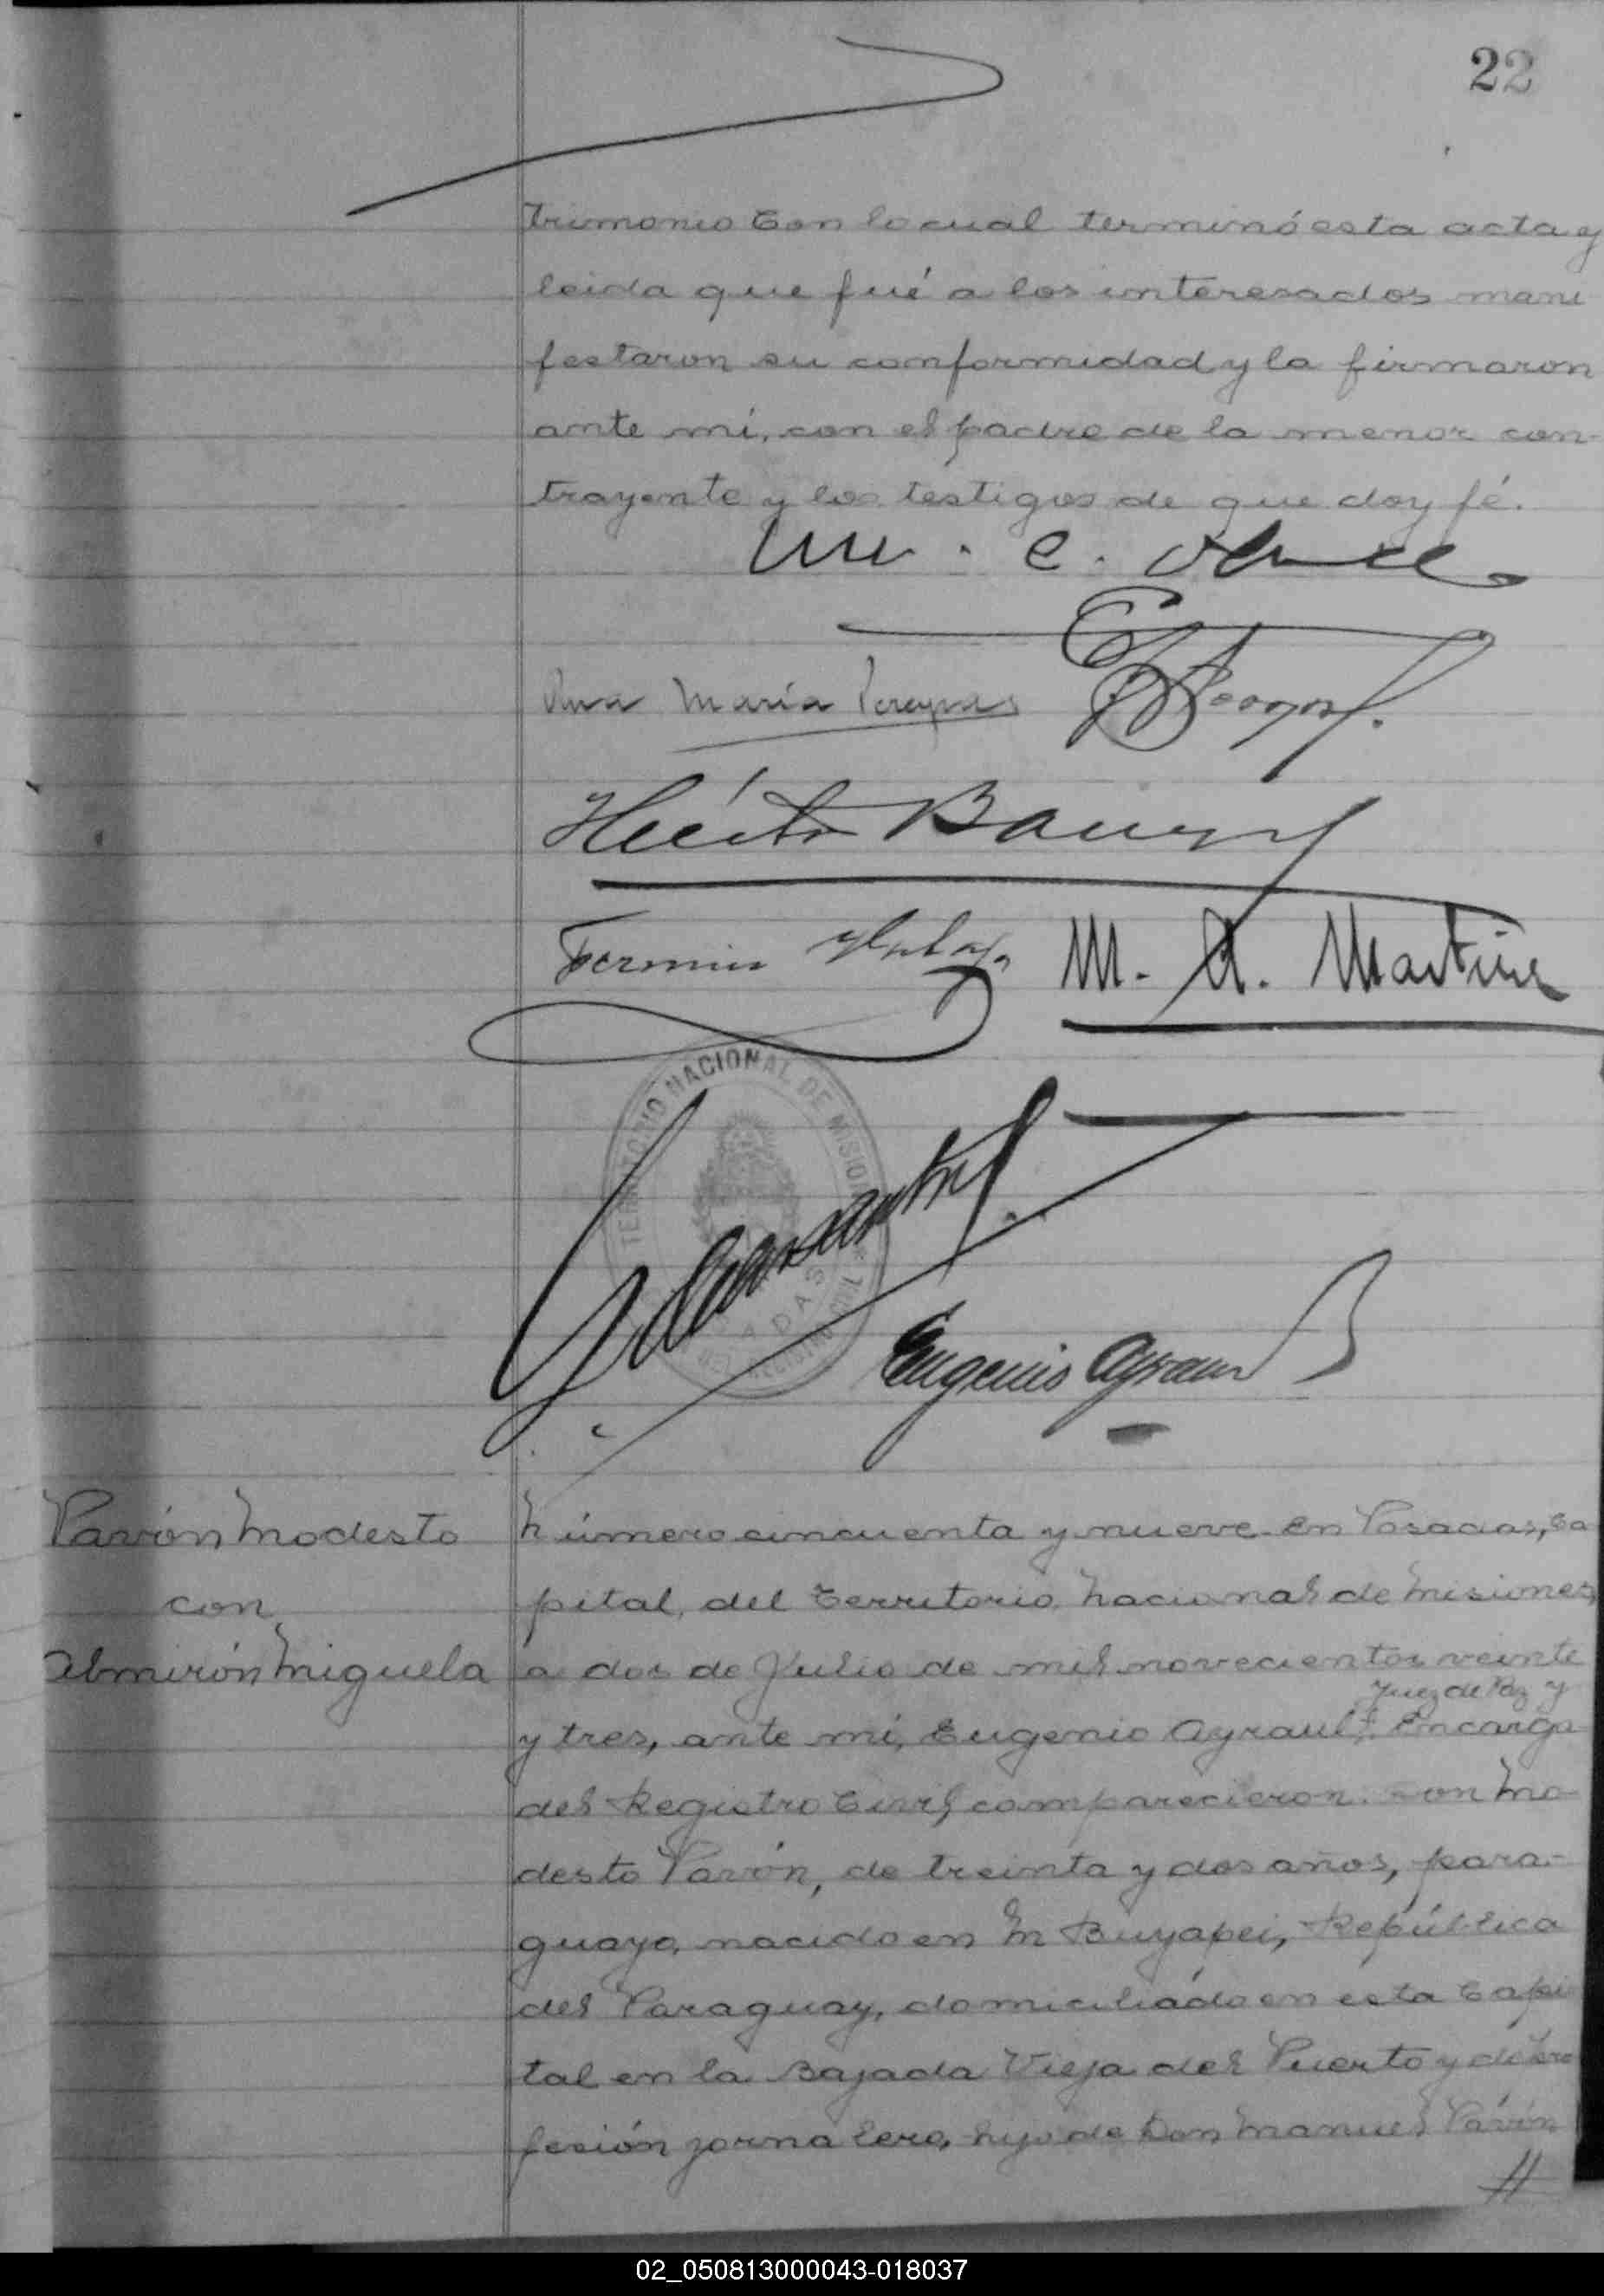 22
trimonio Con lo cual terminó esta acta y
leida que fué a los interesados mani
festaron su conformidad y la firmaron
ante mi, con el padre de la menor con-
trayente y los testigos de que doy fé.
Ana María Pereyra
Héctor
Fermin
M. A. Martine
TERRITORIO NACIONAL DE MISIONES
REGISTRO CIVIL
Eugenio Ayrault
Pavón Modesto
con
Almirón Miguela
Número cincuenta y nueve en Posadas, Ca
pital, del Territorio Nacional de Misiones,
a dos de Julio de mil novecientos veinte
Juez de Paz y
y tres, ante mi, Eugenio Ayrault Encarga
del Registro Civil, comparecieron: Don Mo
desto Pavón, de treinta y dos años, para-
guayo, nacido en M Buyapei, República
del Paraguay, domiciliádo en ésta Capi
tal en la Bajada Vieja del Puerto y de pro
fesión jornalero, hijo de Don Manuel Pavón
//
02_050813000043-018037